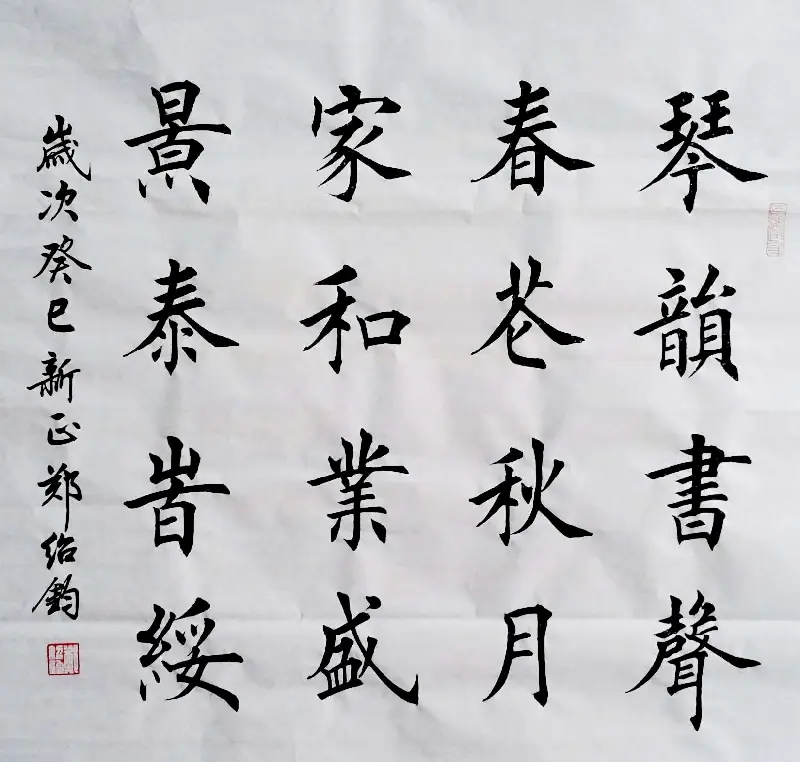 琴韻書聲
春花秋月
家和業盛
景泰旹綏
歲次癸巳新正郑绍鈞